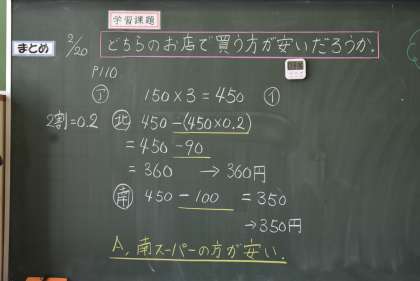 学習課題
まとめ 2/20 どちらのお店で買う方が安いだろうか。
P110
㋐ 150×3=450 ㋑
2割=0.2 ㊗北 450-(450×0.2)
=450-90
=360 → 360円
南 450-100 =350
→350円
A. 南スーパーの方が安い.